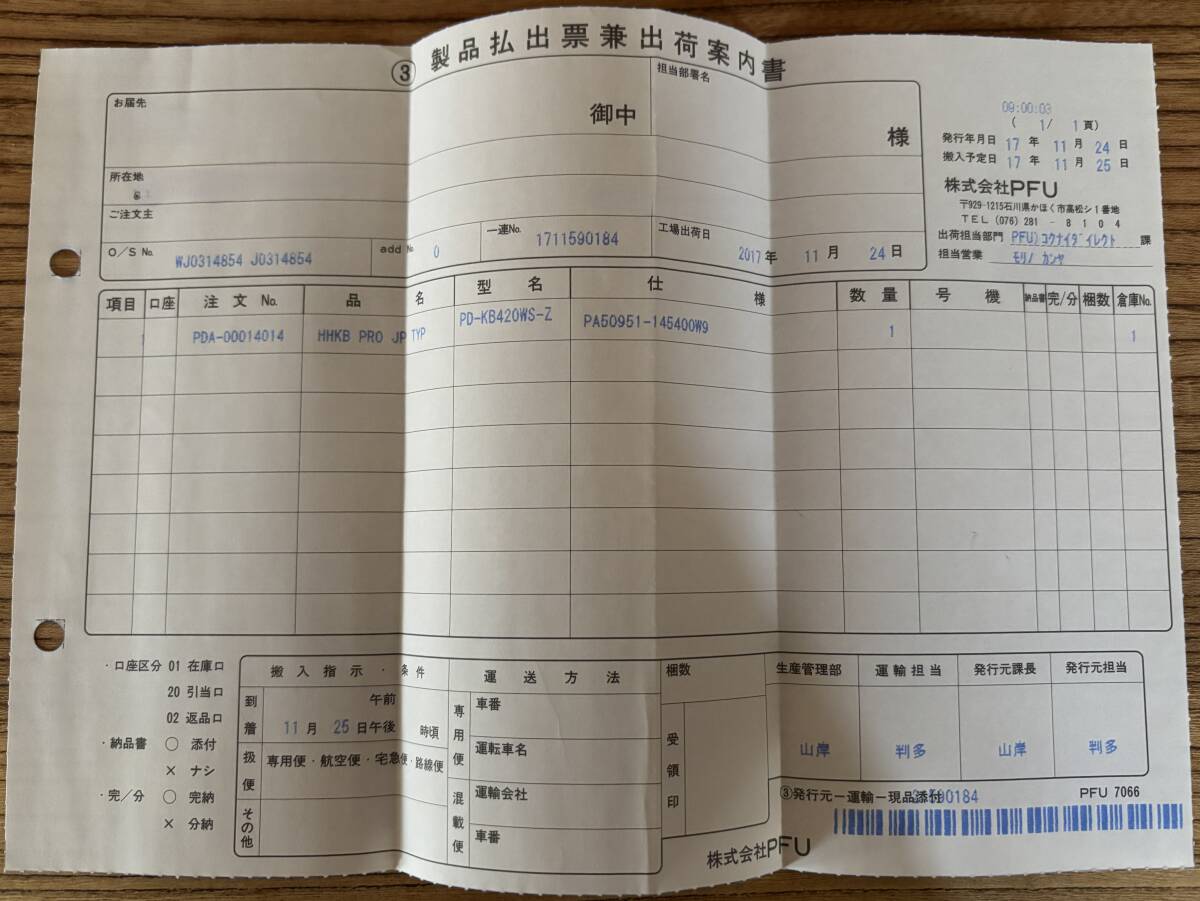 ③ 製品払出票兼出荷案内書
お届先
御中
担当部署名
様
所在地
ご注文主
O/S No. WJ0314854 J0314854
add No. 0
一連No. 1711590184
工場出荷日 2017年 11月 24日
09:00:03
( 1/ 1頁)
発行年月日 17年 11月 24日
搬入予定日 17年 11月 25日
株式会社PFU
〒929-1215石川県かほく市高松シ1番地
TEL (076) 281-8104
出荷担当部門 PFU)コクナイダイレクト 課
担当営業 モリノ カンヤ
項目 口座 注文No. 品名 型名 仕様 数量 号機 納品書 完/分 梱数 倉庫No.
1 PDA-00014014 HHKB PRO JP TYP PD-KB420WS-Z PA50951-145400W9 1 1
・口座区分 01 在庫口
20 引当口
02 返品口
・納品書 ○ 添付
× ナシ
・完/分 ○ 完納
× 分納
搬入指示・条件
到着 11月 25日 午前 午後 時頃
扱便 専用便・航空便・宅急便・路線便
その他
運送方法
専用便 車番
運転車名
混載便 運輸会社
車番
梱数
受領印
生産管理部 運輸担当 発行元課長 発行元担当
山岸 判多 山岸 判多
③発行元ー運輸ー現品添付
PFU 7066
株式会社PFU